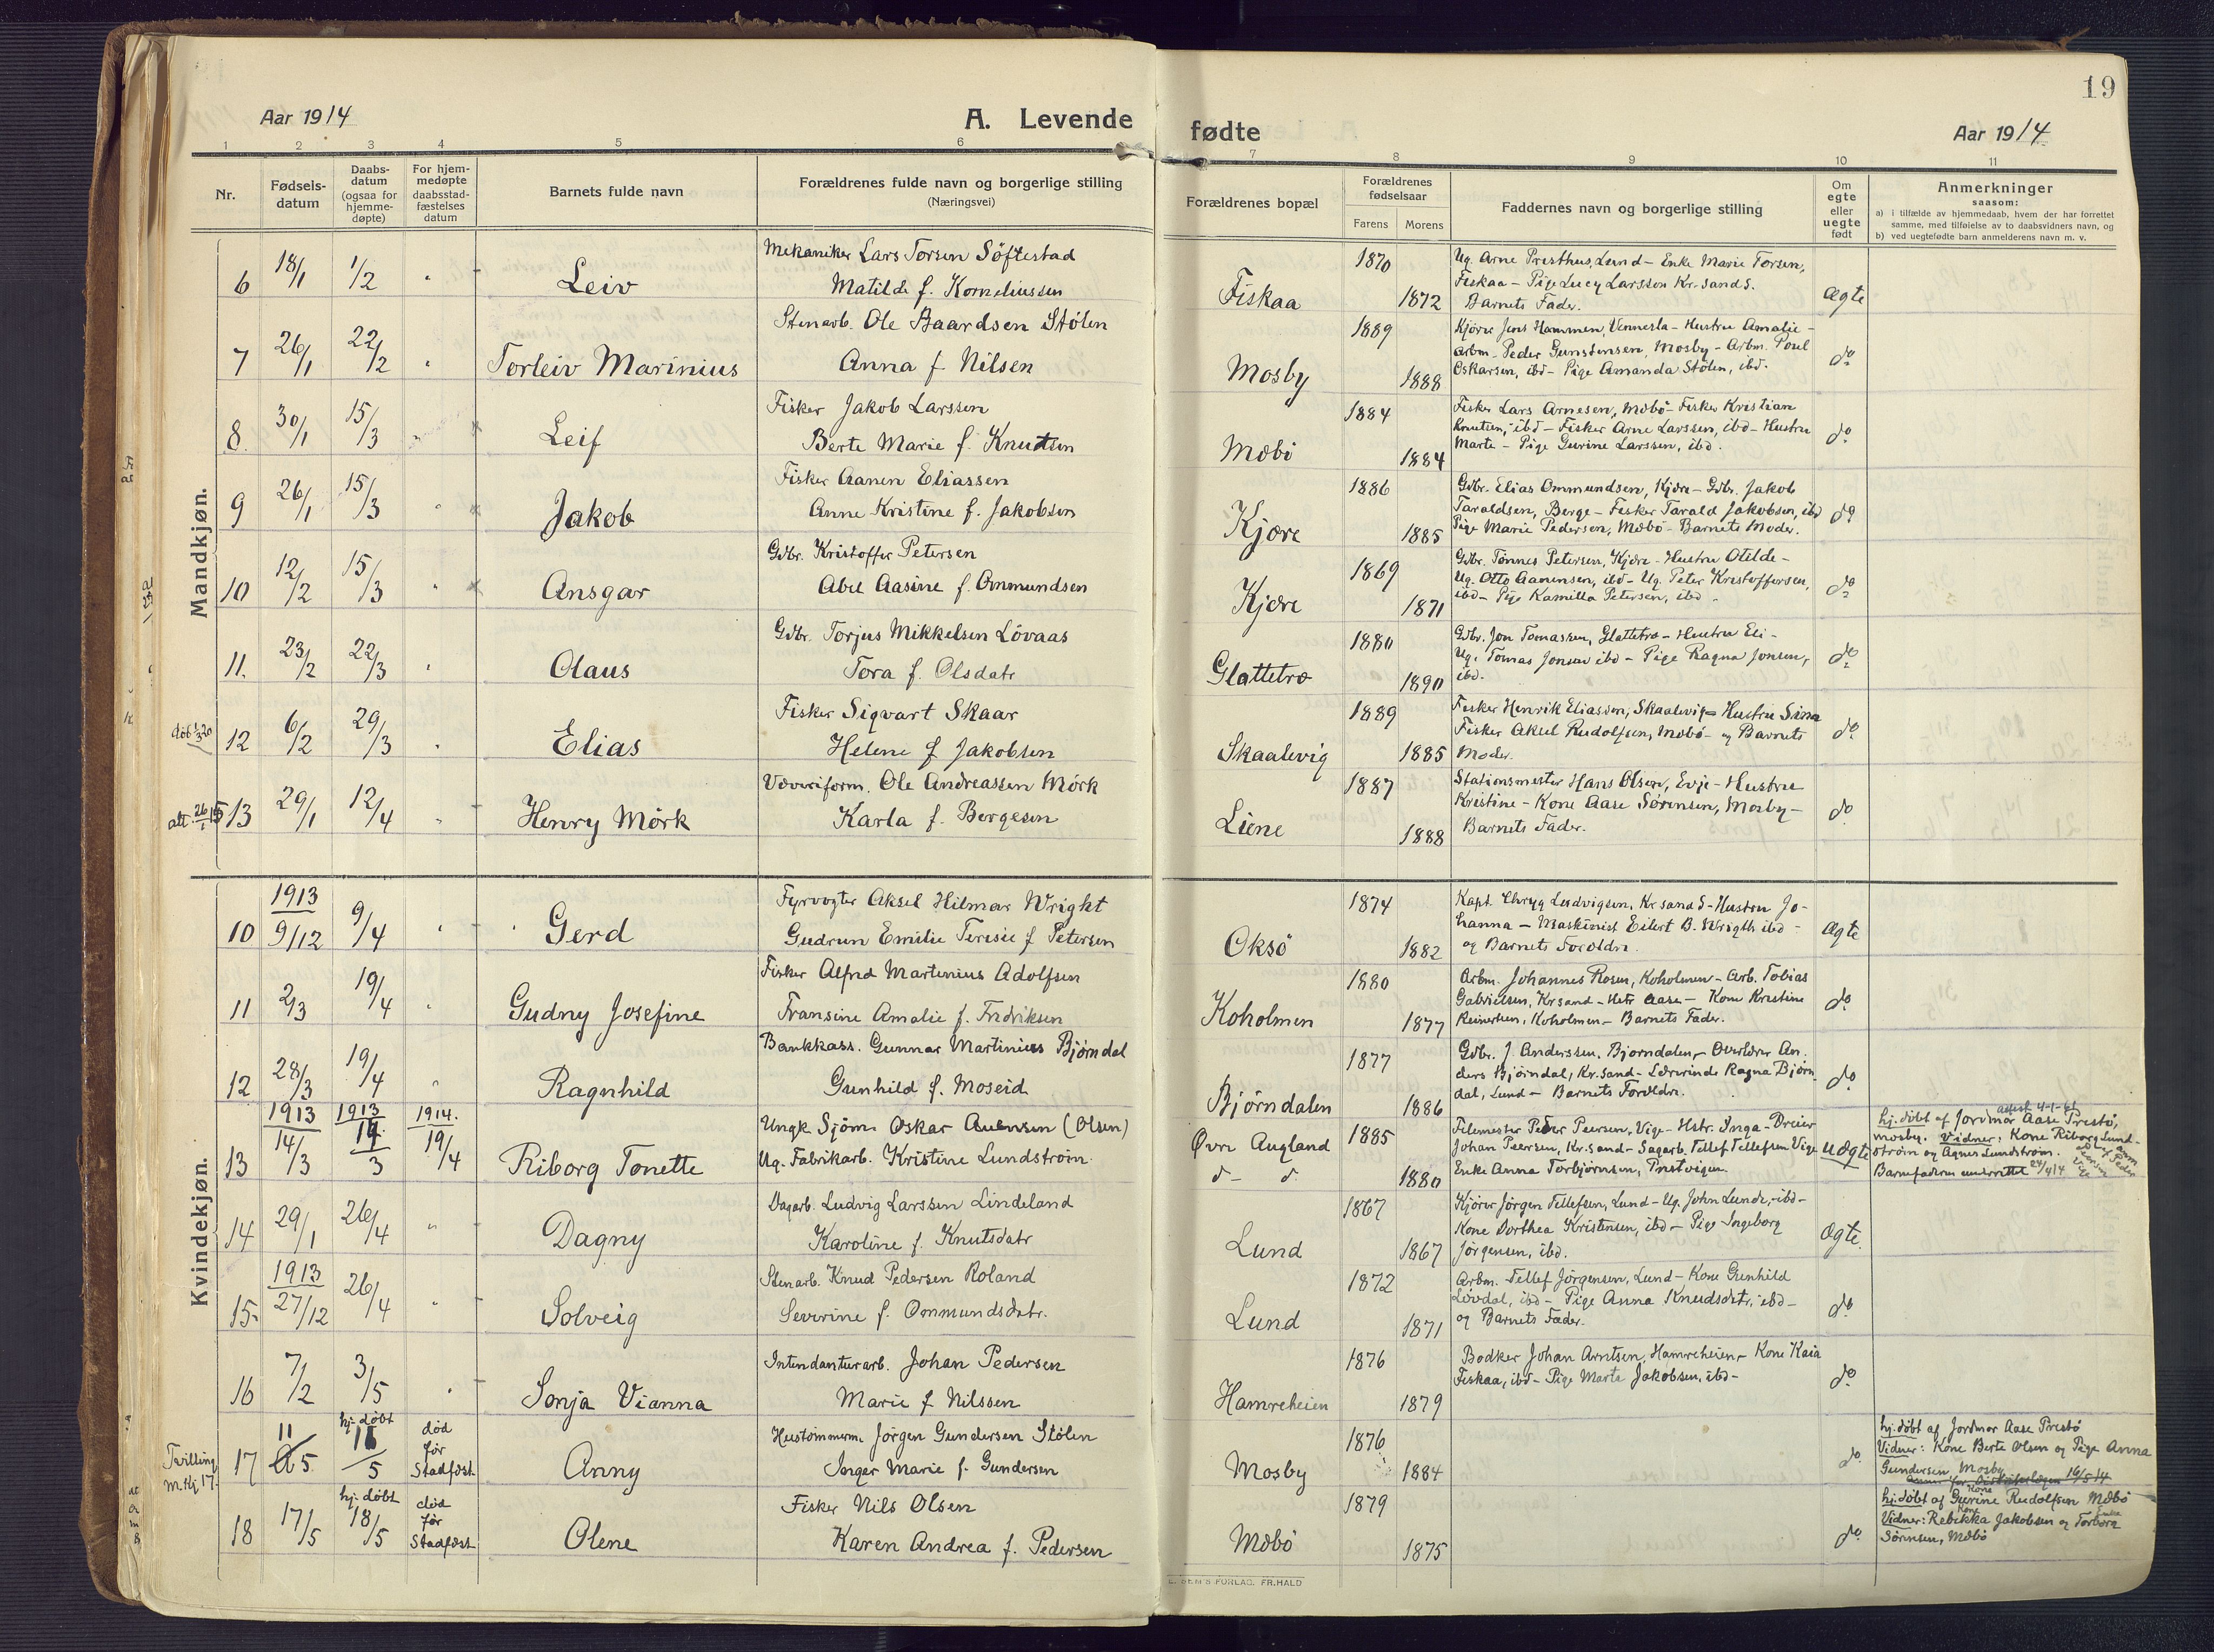 19
Aar 1914
A. Levende
fødte
Aar 1914
1 2 3 4 5 6 7 8 9 10 11
Nr.
Fødsels-
datum
Daabs-
datum
(ogsaa for
hjemme-
døpte)
For hjem-
medøpte
daabsstad-
fæstelses
datum
Barnets fulde navn
Forældrenes fulde navn og borgerlige stilling
(Næringsvei)
Forældrenes bopæl
Forældrenes
fødselsaar
Farens Morens
Faddernes navn og borgerlige stilling
Om
egte
eller
uegte
født
Anmerkninger
saasom:
a) i tilfælde av hjemmedaab, hvem der har forrettet
samme, med tilføielse av to daabsvidners navn, og
b) ved uegtefødte barn anmelderens navn m. v.
Mandkjøn.
6 18/1 1/2 " Leiv
Mekaniker Lars Torsen Söftestad
Matilde f. Korneliussen
Fiskaa 1870 1872
Ug. Arne Presthus, Lund – Enke Marie Torsen,
Fiskaa – Pige Lucy Larssen Kr.sand S.
Barnets Fader.
Ægte
7 26/1 22/2 " Torleiv Marinius
Stenarb. Ole Baardsen Stölen
Anna f. Nilsen
Mosby 1889 1888
Kjörer Jens Hammen, Vennesla – Hustru Amalie –
Arbm. Peder Gunstensen, Mosby – Arbm. Poul
Oskarsen, ibd – Pige Amanda Stölen, ibd.
do
8. 30/1 15/3 Leif
Fisker Jakob Larssen
Berte Marie f. Knudtsen
Mæbö 1884 1884
Fisker Lars Arnesen, Mæbö – Fisker Kristian
Knutsen, ibd – Fisker Arne Larssen, ibd – Hustru
Marte – Pige Gurine Larssen, ibd.
do
9 26/1 15/3 " Jakob
Fisker Aanen Eliassen
Anne Kristine f. Jakobsen
Kjære 1886 1885
Gdbr. Elias Ommundsen, Kjære – Gdbr. Jakob
Taraldsen, Berge – Fisker Tarald Jakobsen, ibd
Pige Marie Pedersen, Mæbö – Barnets Moder.
do
10 12/2 15/3 " Ansgar
Gdbr. Kristoffer Petersen
Abel Aasine f. Ommundsen
Kjære 1869 1871
Gdbr. Tönnes Petersen, Kjære – Hustru Otilde –
Ug. Otto Aanensen, ibd – Ug. Peter Kristoffersen,
ibd – Pige Kamilla Petersen, ibd.
do
11. 23/2 22/3 " Olaus
Gdbr. Torjus Mikkelsen Lövaas
Tora f. Olsdatr
Glattetræ 1880 1890
Gdbr. Jon Tomassen, Glattetræ – Hustru Eli –
Ug. Tomas Jonsen ibd – Pige Ragna Jonsen,
ibd.
do
12 6/2 29/3 " Elias
Fisker Sigvart Skaar
Helene f. Jakobsen
Skaalevig 1889 1885
Fisker Henrik Eliassen, Skaalevig – Hustru Sina
Fisker Aksel Rudolfsen, Mæbö – og Barnets
Moder.
do
13 29/1 12/4 " Henry Mörk
Væveriform. Ole Andreassen Mörk
Karla f. Bergesen
Liene 1887 1888
Stationsmester Hans Olsen, Evje – Hustru
Kristine – Kone Aase Sörensen, Mosby –
Barnets Fader.
do
Kvindekjøn.
10 1913 9/12 9/4 " Gerd
Fyrvogter Aksel Hilmar Wright
Gudrun Emilie Teresie f. Petersen
Oksö 1874 1882
Kapt. Ludvigsen, Kr.sand S – Hustru Jo-
hanna – Maskinist Eilert B. Wrigth ibd –
og Barnets Forældre.
Ægte
11 2/3 19/4 " Gudny Josefine
Fisker Alfred Martinius Adolfsen
Fransine Amalie f. Fredriksen
Koholmen 1880 1877
Arbm. Johannes Rosen, Koholmen – Arb. Tobias
Gabrielsen, Kr.sand – Hstr Aase – Kone Kristine
Reinertsen, Koholmen – Barnets Fader.
do
12 28/3 19/4 " Ragnhild
Bankkass. Gunnar Martinius Björndal
Gunhild f. Moseid
Björndalen 1877 1886
Gdbr. J. Anderssen, Bjorndalen – Overlærer An-
ders Björndal, Kr.sand – Lærerinde Ragna Björn-
dal, Lund – Barnets Forældre.
do
13 1913 14/3 1913 14/3 1914. 19/4 Riborg Tonette
Ungk. Sjöm. Oskar Auensen (Olsen)
Ug. Fabrikarb. Kristine Lundström
Övre Augland
d– d. 1885 1880
Filemester Peder Peersen, Vige – Hstr. Inga – Dreier
Johan Peersen, Kr.sand – Sagarb. Tellef Tellefsen Vige
Enke Anna Torbjörnsen, Prestvigen
Uægte
attest 4-1-61
hj.döbt af Jordmor Aase Prestö,
Mosby. Vidner: Kone Riborg Lund-
ström og Agnes Lundström.
Barnefaderen underrettet 24/4 14
14 29/1 26/4 " Dagny
Dagarb. Ludvig Larssen Lindeland
Karoline f. Knutsdatr
Lund 1867 1867
Kjörer Jörgen Tellefsen, Lund – Ug. John Lunde, ibd –
Kone Dorthea Kristensen, ibd – Pige Ingeborg
Jörgensen, ibd.
Ægte.
15 1913 27/12 26/4 " Solveig
Stenarb. Knud Pedersen Roland
Severine f. Ommundsdatr.
Lund 1872 1871
Arbm. Tellef Jörgensen, Lund – Kone Gunhild
Lövdal, ibd – Pige Anna Knudsdatr, ibd –
og Barnets Fader.
do
16 7/2 3/5 " Sonja Vianna
Intendanturarb. Johan Pedersen
Marie f. Nilssen
Hamreheien 1876 1879
Bødker Johan Arntsen, Hamreheien – Kone Kaia
Fiskaa, ibd – Pige Marta Jakobsen, ibd –
do
Tvilling
m. Hj 17.
17 11/5 hj. döbt 11/5
död
för
Stadfæst.
Anny
Hustömmerm. Jörgen Gundersen Stölen
Inger Marie f. Gundersen
Mosby 1876 1884
do.
hj.döbt af Jordmor Aase Prestö
Vidner: Kone Berte Olsen og Pige Anna
Gundersen, Mosby
18 17/5 hj. döbt 18/5
död
för
Stadfæst.
Olene
Fisker Nils Olsen
Karen Andrea f. Pedersen
Mæbö 1879 1875
do.
hj.döbt af Kone Gurine Rudolfsen Mæbö
Vidner: Kone Rebekka Jakobsen og Enke Torborg
Sörensen, Mæbö
FORLAG. FR.HALD